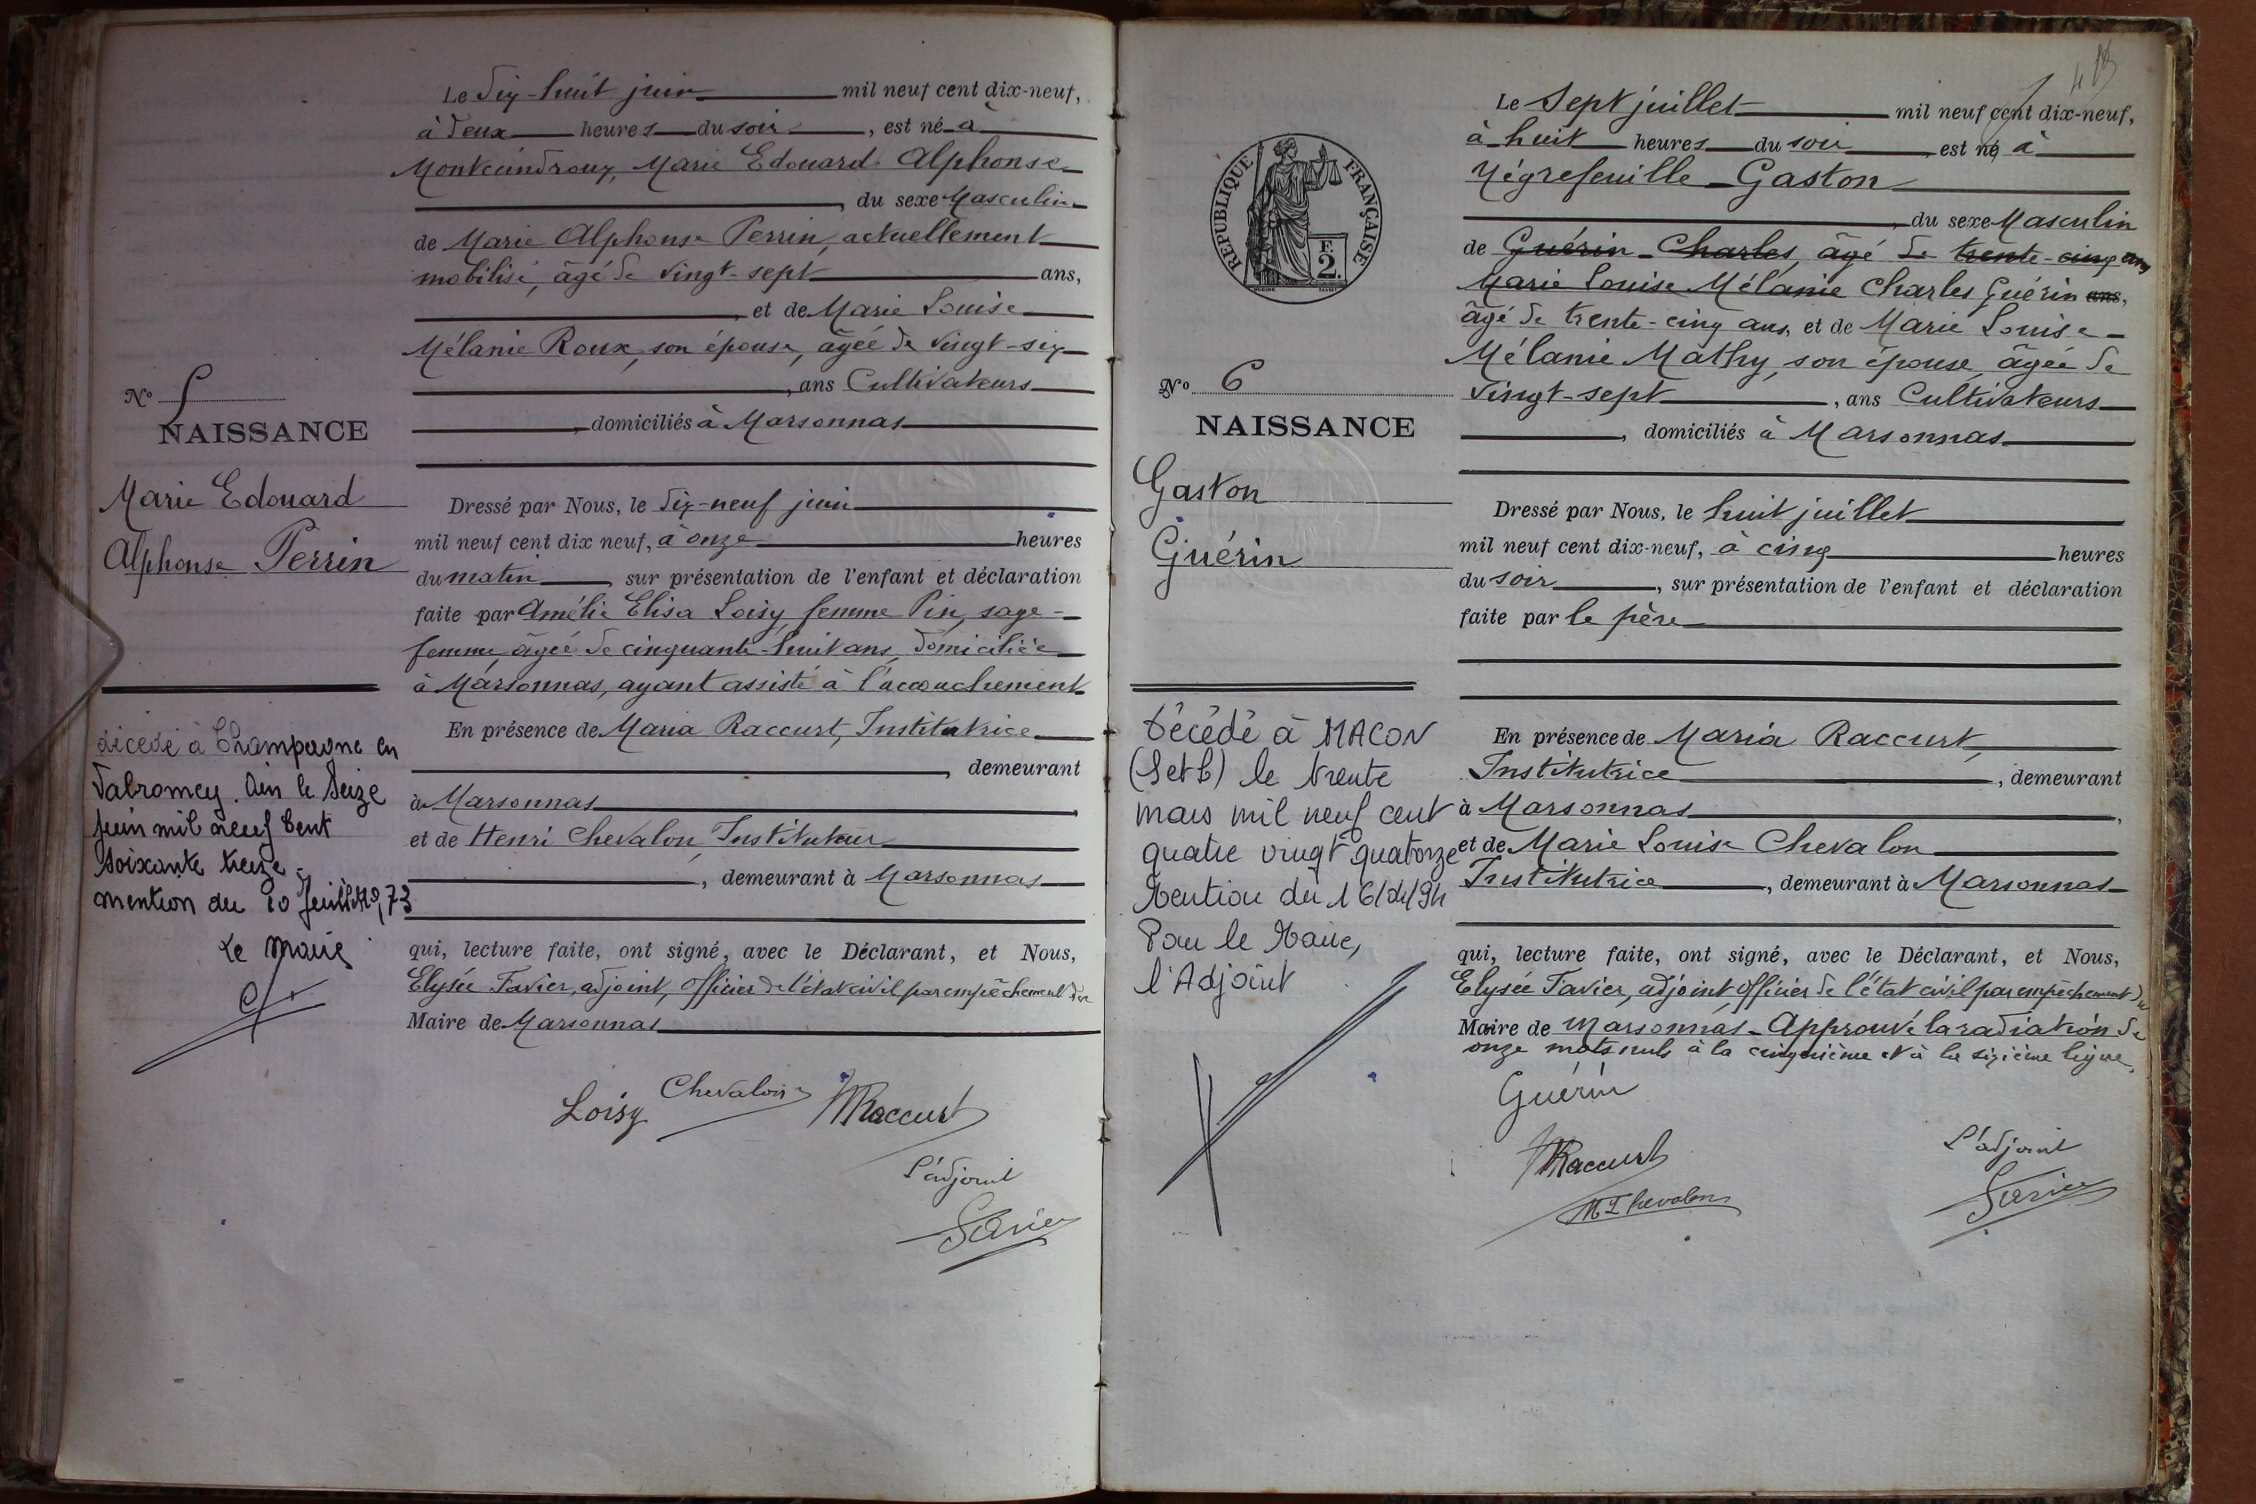 Le dix-huit juin mil neuf cent dix-neuf,
à deux heures du soir, est né à
Montceindroux, Marie Edouard Alphonse
, du sexe Masculin
de Marie Alphonse Perrin, actuellement
mobilisé, âgé de vingt-sept ans,
, et de Marie Louise
Mélanie Roux, son épouse, âgée de vingt-six
, ans Cultivateurs
, domiciliés à Marsonnas
No 5
NAISSANCE
Marie Edouard
Alphonse Perrin
Dressé par Nous, le dix-neuf juin
mil neuf cent dix neuf, à onze heures
du matin, sur présentation de l'enfant et déclaration
faite par Amélie Elisa Loisy, femme Pin, sage-
femme, âgée de cinquante-huit ans, domiciliée
à Marsonnas, ayant assisté à l'accouchement
En présence de Maria Raccurt, Institutrice
, demeurant
à Marsonnas
et de Henri Chevalon, Instituteur
, demeurant à Marsonnas
qui, lecture faite, ont signé, avec le Déclarant, et Nous,
Elysée Favier, adjoint, officier de l'état civil par empêchement du
Maire de Marsonnas
décédé à Champagne en
Valromey. Ain le Seize
juin mil neuf Cent
soixante treize.
mention du 20 Juillet 1973
Le Maire
Loisy Chevalon MRaccurt
L'adjoint
Favier
RÉPUBLIQUE FRANÇAISE
F.
2.
Le Sept juillet mil neuf cent dix-neuf,
à huit heures du soir est né à
Négrefeuille - Gaston
, du sexe Masculin
de Guérin - Charles, âgé de trente-cinq ans
Marie Louise Mélanie Charles Guérin ans,
âgé de trente-cinq ans, et de Marie Louise
Mélanie Mathy, son épouse, âgée de
vingt-sept, ans Cultivateurs
, domiciliés à Marsonnas
No 6
NAISSANCE
Gaston
Guérin
Dressé par Nous, le huit juillet
mil neuf cent dix-neuf, à cinq heures
du soir, sur présentation de l'enfant et déclaration
faite par le père
En présence de Maria Raccurt,
Institutrice, demeurant
à Marsonnas,
et de Marie Louise Chevalon
Institutrice, demeurant à Marsonnas
qui, lecture faite, ont signé, avec le Déclarant, et Nous,
Elysée Favier, adjoint, officier de l'état civil par empêchement du
Maire de Marsonnas - Approuvé la radiation de
onze mots nuls à la cinquième et à la sixième ligne.
Décédé à MACON
(S et L) le trente
mars mil neuf cent
quatre vingt quatorze
Mention du 16/04/94
Pour le Maire,
l'Adjoint
Guérin
MRaccurt
M L Chevalon
L'adjoint
Favier